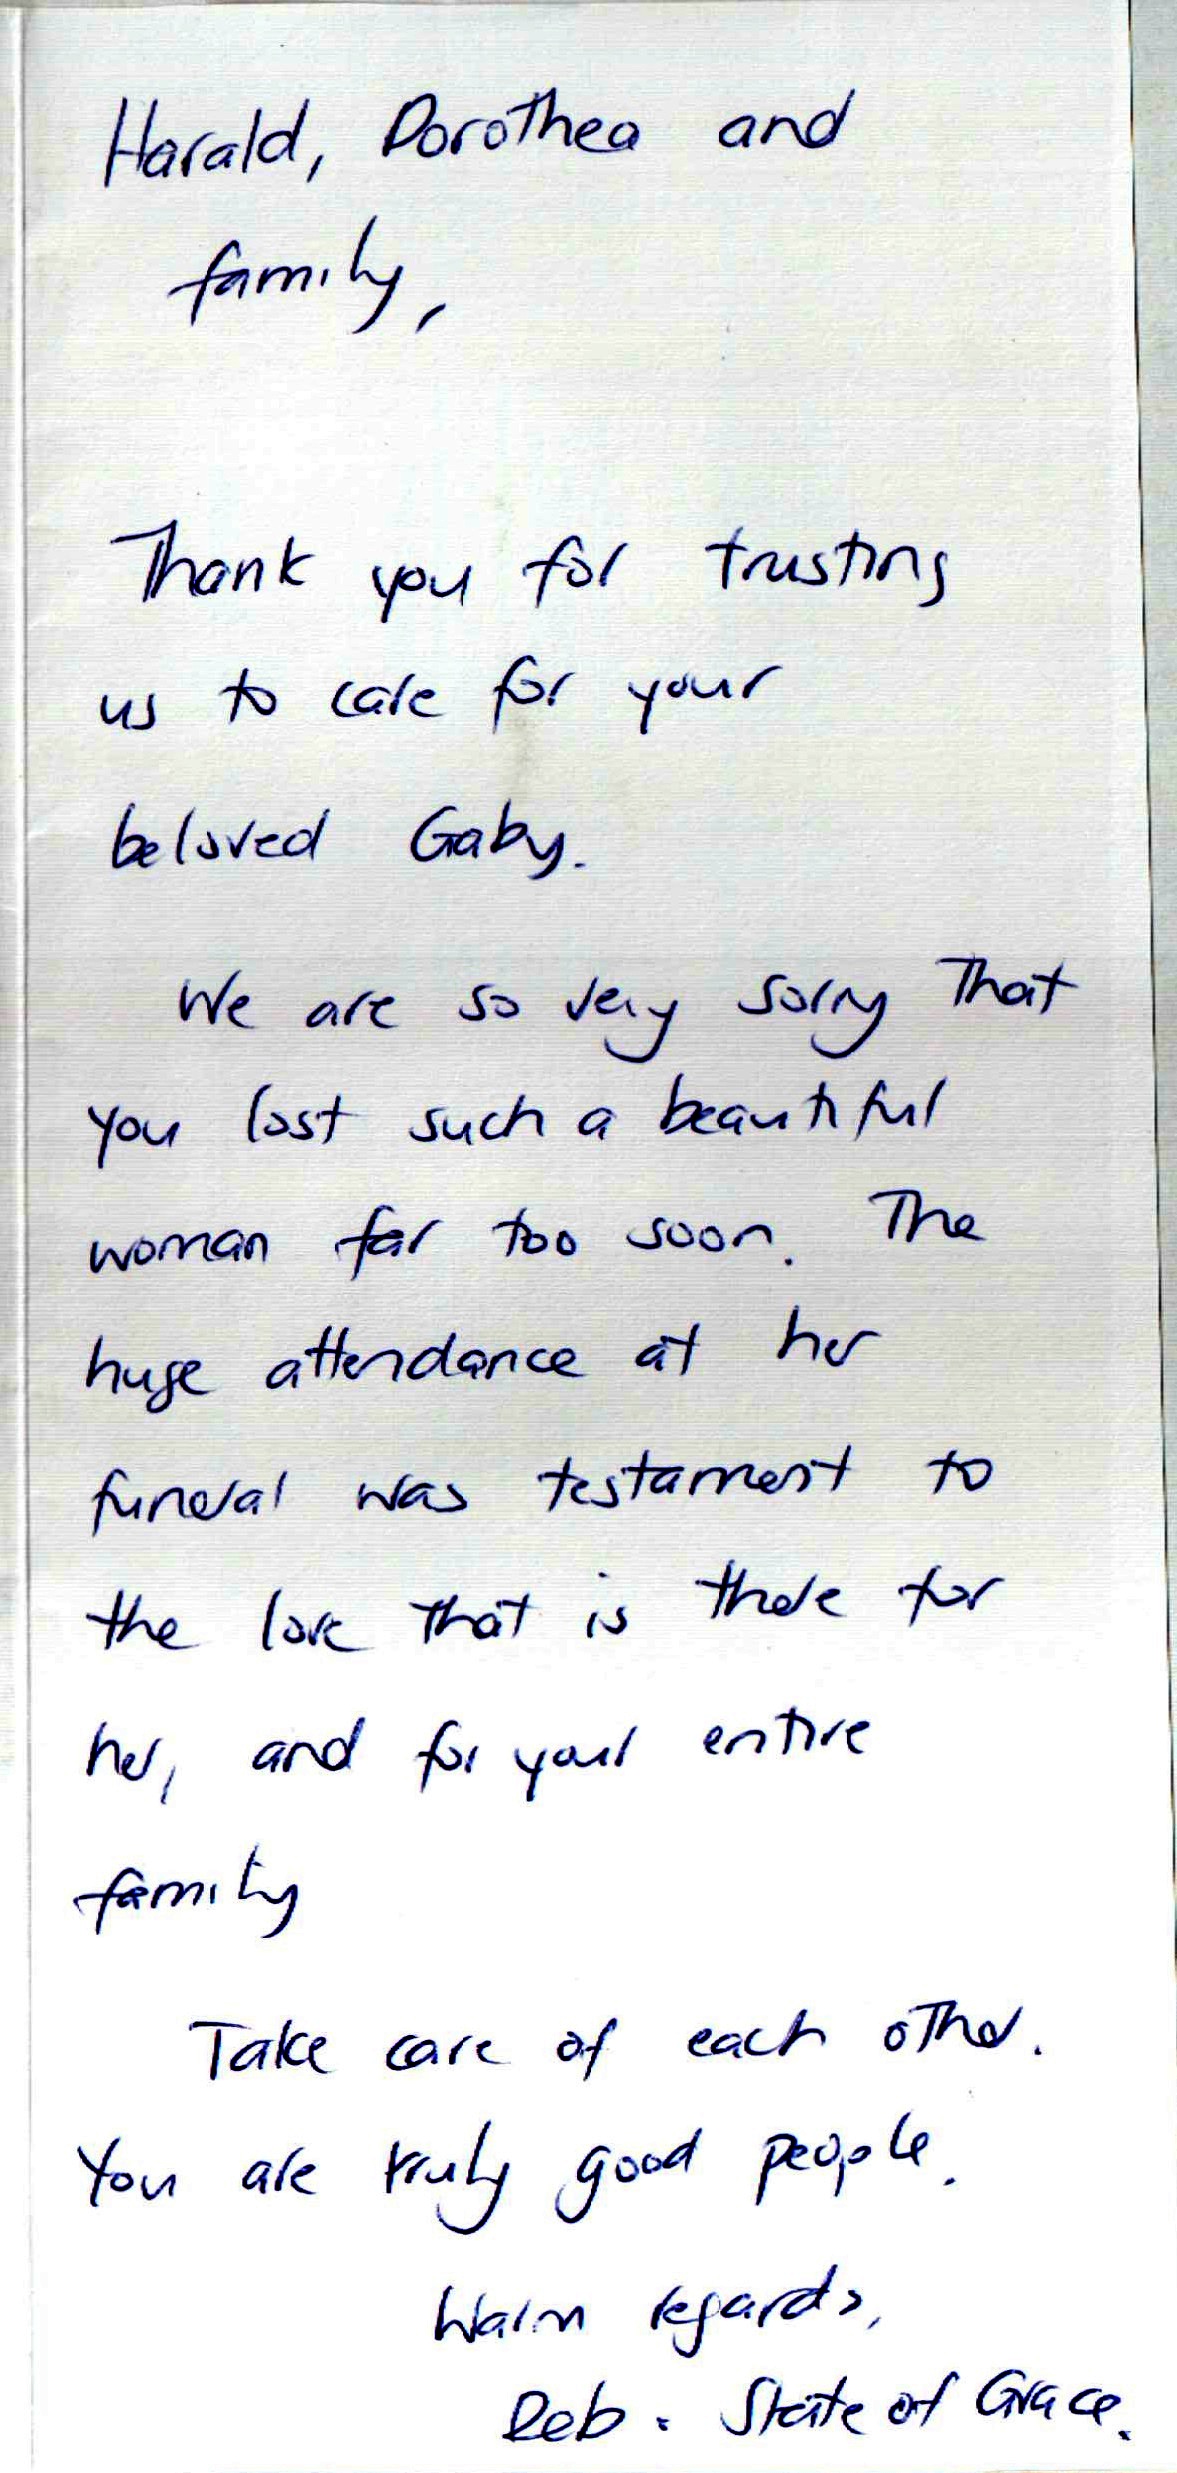 Harald, Dorothea and
family,
Thank you for trusting
us to care for your
beloved Gaby.
We are so very sorry that
you lost such a beautiful
woman far too soon. The
huge attendance at her
funeral was testament to
the love that is there for
her, and for your entire
family
Take care of each other.
You are truly good people.
Warm regards,
Deb. State of Grace.